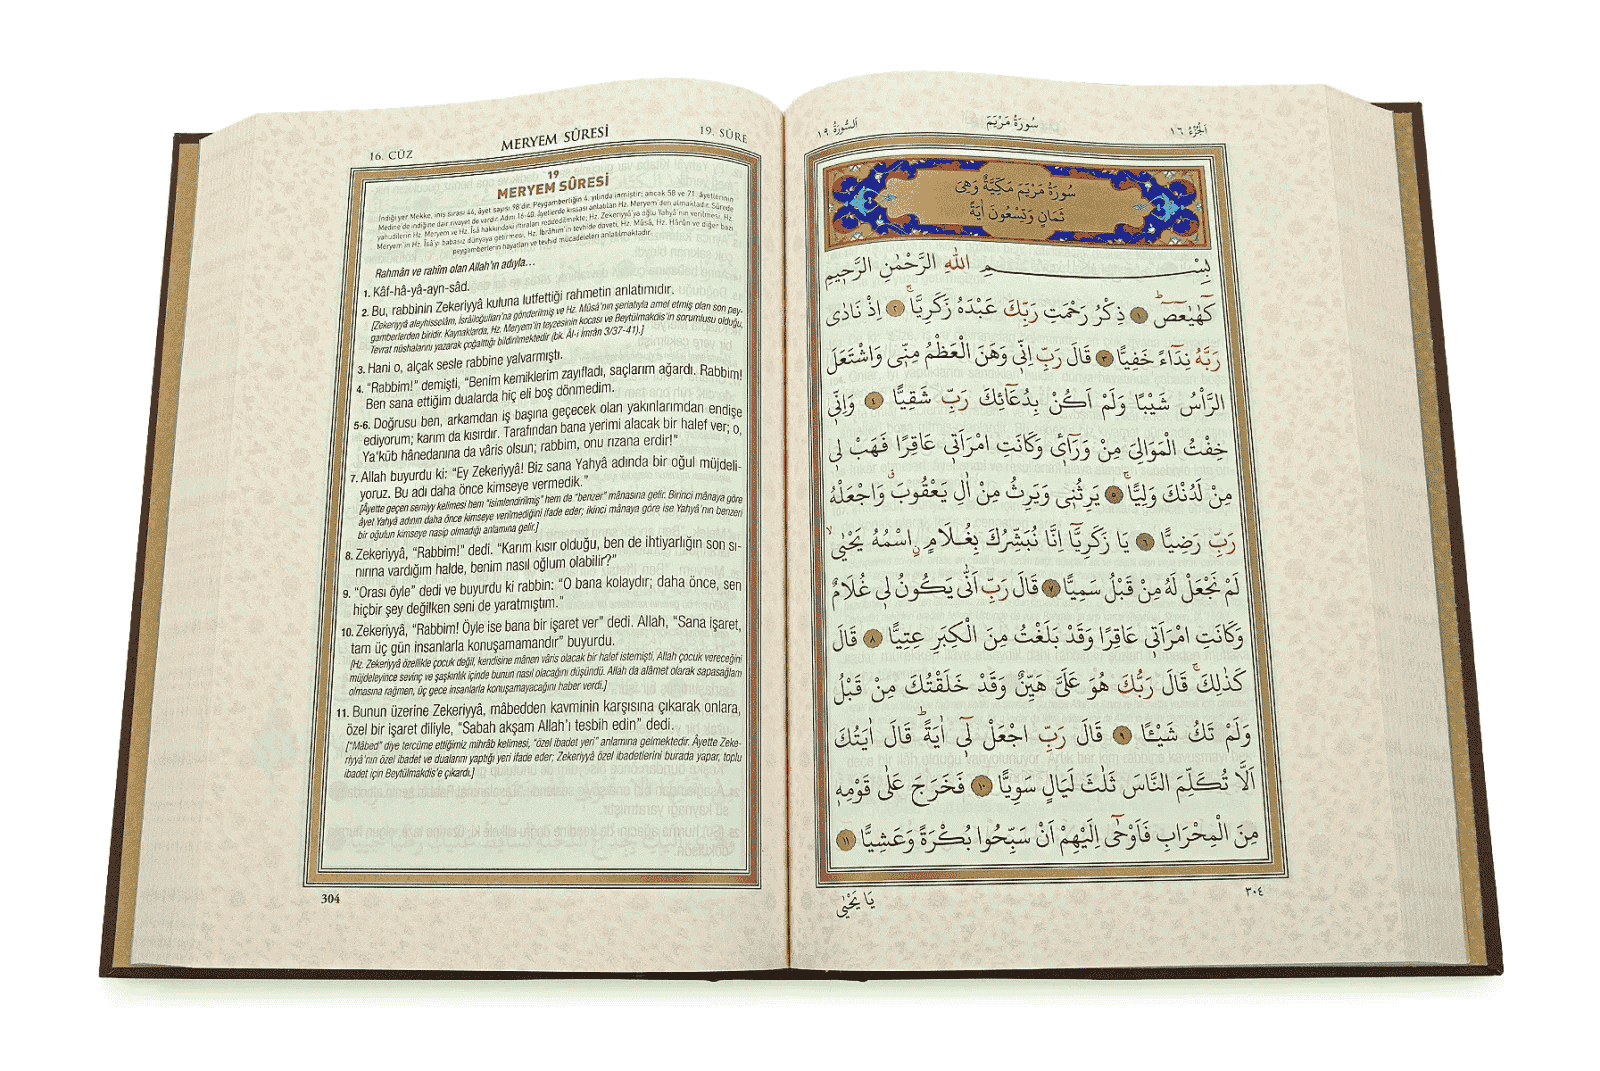 16. CÜZ
MERYEM SÛRESİ
19. SÛRE
19
MERYEM SÛRESİ
İndiği yer Mekke, iniş sırası 44, âyet sayısı 98'dir. Peygamberliğin 4. yılında inmiştir; ancak 58 ve 71. âyetlerinin
Medine'de indiğine dair rivayet de vardır. Adını 16-40. âyetlerde kıssası anlatılan Hz. Meryem'den almaktadır. Sûrede
yahudilerin Hz. Meryem ve Hz. Îsâ hakkındaki iftiraları reddedilmekte; Hz. Zekeriyyâ'ya oğlu Yahyâ'nın verilmesi, Hz.
Meryem'in Hz. Îsâ'yı babasız dünyaya getirmesi, Hz. İbrâhim'in tevhide daveti, Hz. Mûsâ, Hz. Hârûn ve diğer bazı
peygamberlerin hayatları ve tevhid mücadeleleri anlatılmaktadır.
Rahmân ve rahîm olan Allah'ın adıyla...
1. Kâf-hâ-yâ-ayn-sâd.
2. Bu, rabbinin Zekeriyyâ kuluna lutfettiği rahmetin anlatımıdır.
[Zekeriyyâ aleyhisselâm, İsrâiloğulları'na gönderilmiş ve Hz. Mûsâ'nın şeriatıyla amel etmiş olan son pey-
gamberlerden biridir. Kaynaklarda, Hz. Meryem'in teyzesinin kocası ve Beytülmakdis'in sorumlusu olduğu,
Tevrat nüshalarını yazarak çoğalttığı bildirilmektedir (bk. Âl-i İmrân 3/37-41).]
3. Hani o, alçak sesle rabbine yalvarmıştı.
4. "Rabbim!" demişti, "Benim kemiklerim zayıfladı, saçlarım ağardı. Rabbim!
Ben sana ettiğim dualarda hiç eli boş dönmedim.
5-6. Doğrusu ben, arkamdan iş başına geçecek olan yakınlarımdan endişe
ediyorum; karım da kısırdır. Tarafından bana yerimi alacak bir halef ver; o,
Ya'kūb hânedanına da vâris olsun; rabbim, onu rızana erdir!"
7. Allah buyurdu ki: "Ey Zekeriyyâ! Biz sana Yahyâ adında bir oğul müjdeli-
yoruz. Bu adı daha önce kimseye vermedik."
[Âyette geçen semiyy kelimesi hem "isimlendirilmiş" hem de "benzer" mânasına gelir. Birinci mânaya göre
âyet Yahyâ adının daha önce kimseye verilmediğini ifade eder; ikinci mânaya göre ise Yahyâ'nın benzeri
bir oğulun kimseye nasip olmadığı anlamına gelir.]
8. Zekeriyyâ, "Rabbim!" dedi. "Karım kısır olduğu, ben de ihtiyarlığın son sı-
nırına vardığım halde, benim nasıl oğlum olabilir?"
9. "Orası öyle" dedi ve buyurdu ki rabbin: "O bana kolaydır; daha önce, sen
hiçbir şey değilken seni de yaratmıştım."
10. Zekeriyyâ, "Rabbim! Öyle ise bana bir işaret ver" dedi. Allah, "Sana işaret,
tam üç gün insanlarla konuşamamandır" buyurdu.
[Hz. Zekeriyyâ özellikle çocuk değil, kendisine mânen vâris olacak bir halef istemişti, Allah çocuk vereceğini
müjdeleyince sevinç ve şaşkınlık içinde bunun nasıl olacağını düşündü. Allah da alâmet olarak sapasağlam
olmasına rağmen, üç gece insanlarla konuşamayacağını haber verdi.]
11. Bunun üzerine Zekeriyyâ, mâbedden kavminin karşısına çıkarak onlara,
özel bir işaret diliyle, "Sabah akşam Allah'ı tesbih edin" dedi.
["Mâbed" diye tercüme ettiğimiz mihrâb kelimesi, "özel ibadet yeri" anlamına gelmektedir. Âyette Zeke-
riyyâ'nın özel ibadet ve dualarını yaptığı yeri ifade eder; Zekeriyyâ özel ibadetlerini burada yapar, toplu
ibadet için Beytülmakdis'e çıkardı.]
304
اَلْجُزْءُ ١٦
سُورَةُ مَرْيَمَ
اَلسُّورَةُ ١٩
سُورَةُ مَرْيَمَ مَكِّيَّةٌ وَهِيَ
ثَمَانٍ وَتِسْعُونَ اٰيَةً
بِسْمِ اللّٰهِ الرَّحْمٰنِ الرَّحِيمِ
كٓهٰيٰعٓصٓ ۜ ﴿١﴾ ذِكْرُ رَحْمَتِ رَبِّكَ عَبْدَهُ زَكَرِيَّا ۚ ﴿٢﴾ اِذْ نَادٰى
رَبَّهُ نِدَٓاءً خَفِيًّا ﴿٣﴾ قَالَ رَبِّ اِنّ۪ي وَهَنَ الْعَظْمُ مِنّ۪ي وَاشْتَعَلَ
الرَّأْسُ شَيْبًا وَلَمْ اَكُنْ بِدُعَٓائِكَ رَبِّ شَقِيًّا ﴿٤﴾ وَاِنّ۪ي
خِفْتُ الْمَوَالِيَ مِنْ وَرَٓاء۪ي وَكَانَتِ امْرَاَت۪ي عَاقِرًا فَهَبْ ل۪ي
مِنْ لَدُنْكَ وَلِيًّا ۙ ﴿٥﴾ يَرِثُن۪ي وَيَرِثُ مِنْ اٰلِ يَعْقُوبَ ۗ وَاجْعَلْهُ
رَبِّ رَضِيًّا ﴿٦﴾ يَا زَكَرِيَّٓا اِنَّا نُبَشِّرُكَ بِغُلَامٍۨ اسْمُهُ يَحْيٰى ۙ
لَمْ نَجْعَلْ لَهُ مِنْ قَبْلُ سَمِيًّا ﴿٧﴾ قَالَ رَبِّ اَنّٰى يَكُونُ ل۪ي غُلَامٌ
وَكَانَتِ امْرَاَت۪ي عَاقِرًا وَقَدْ بَلَغْتُ مِنَ الْكِبَرِ عِتِيًّا ﴿٨﴾ قَالَ
كَذٰلِكَ ۚ قَالَ رَبُّكَ هُوَ عَلَيَّ هَيِّنٌ وَقَدْ خَلَقْتُكَ مِنْ قَبْلُ
وَلَمْ تَكُ شَيْـًٔا ﴿٩﴾ قَالَ رَبِّ اجْعَلْ ل۪ٓي اٰيَةً ۜ قَالَ اٰيَتُكَ
اَلَّا تُكَلِّمَ النَّاسَ ثَلٰثَ لَيَالٍ سَوِيًّا ﴿١٠﴾ فَخَرَجَ عَلٰى قَوْمِه۪
مِنَ الْمِحْرَابِ فَاَوْحٰٓى اِلَيْهِمْ اَنْ سَبِّحُوا بُكْرَةً وَعَشِيًّا ﴿١١﴾
٣٠٤
يَا يَحْيٰى